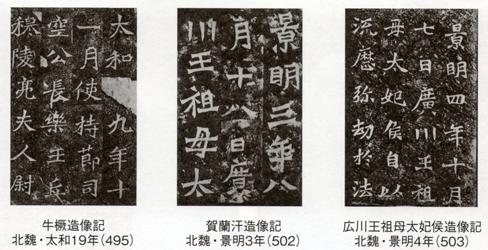 太和 九年十
一月使持節司
空公長樂王丘
穆陵亮夫人尉
牛橛造像記
北魏・太和19年(495)
景明三年八
月十八日廣
川王祖母太
賀蘭汗造像記
北魏・景明3年(502)
景明四年十月
七日廣川王祖
母太妃侯自以
流歷弥劫於法
広川王祖母太妃侯造像記
北魏・景明4年(503)